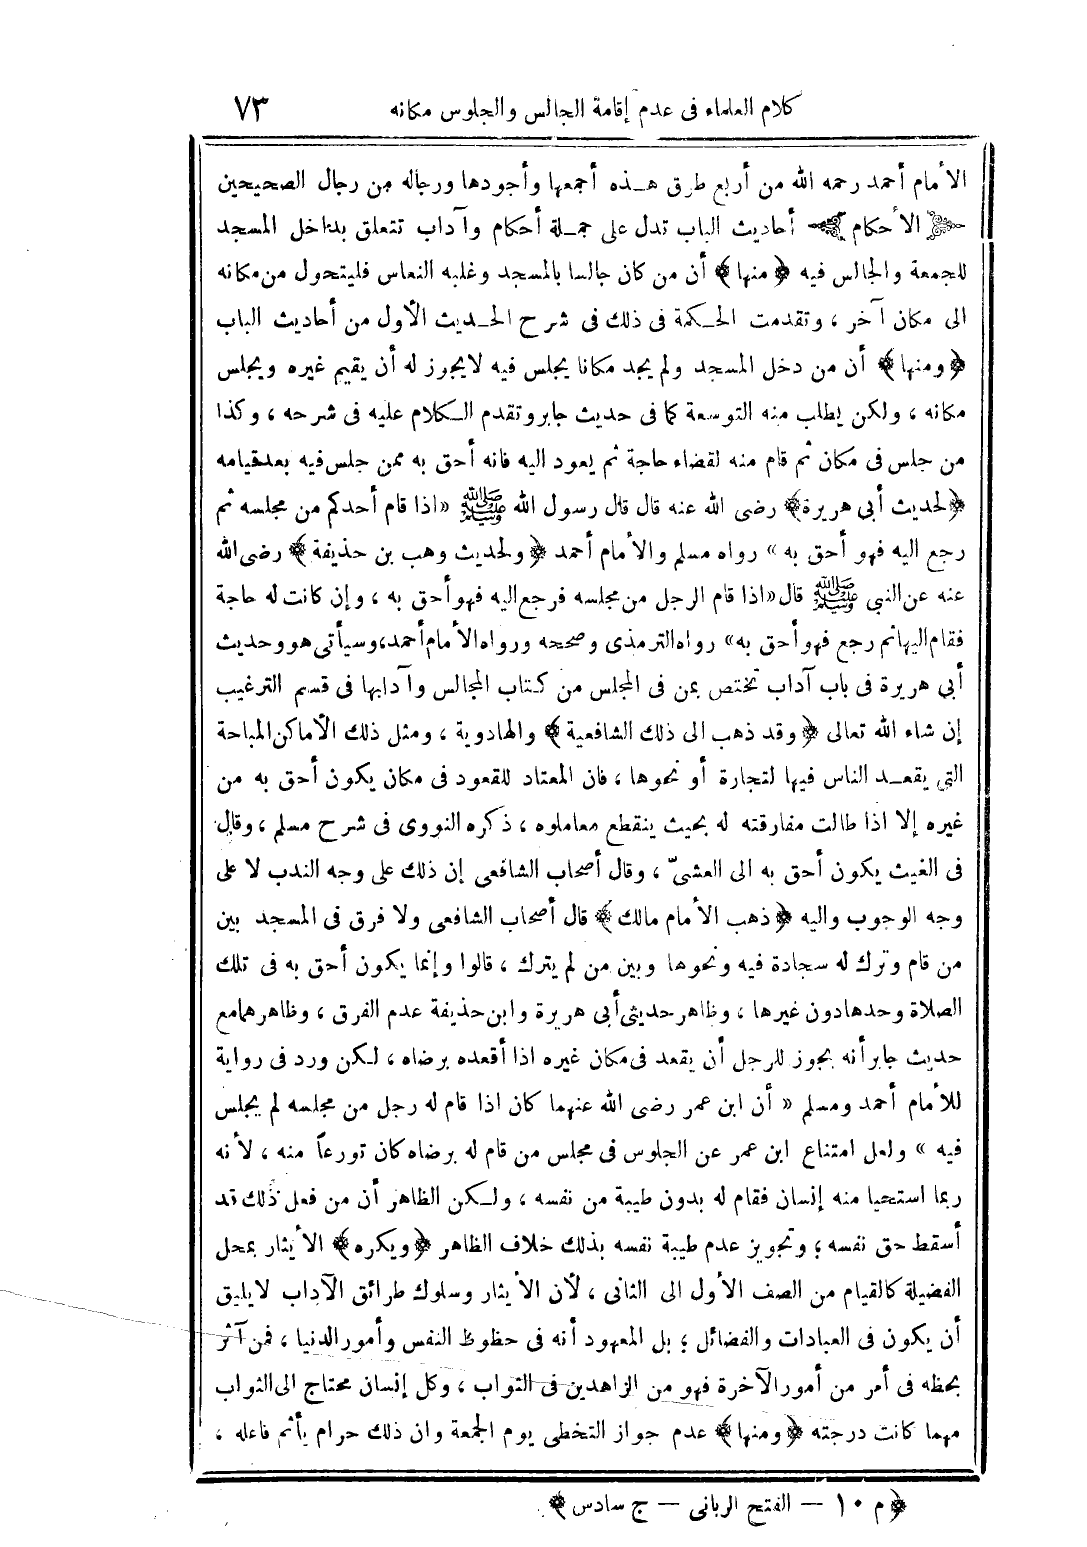 كلام العلماء فى عدم إقامة الجالس والجلوس مكانه ٧٣
الأمام أحمد رحمه الله من أربع طرق هذه أجمعها وأجودها ورجاله من رجال الصحيحين
﴿ الأحكام ﴾ أحاديث الباب تدل على جملة أحكام وآداب تتعلق بداخل المسجد
للجمعة والجالس فيه ﴿ منها ﴾ أن من كان جالسا بالمسجد وغلبه النعاس فليتحول من مكانه
الى مكان آخر ، وتقدمت الحكمة فى ذلك فى شرح الحديث الأول من أحاديث الباب
﴿ ومنها ﴾ أن من دخل المسجد ولم يجد مكانا يجلس فيه لا يجوز له أن يقيم غيره ويجلس
مكانه ، ولكن يطلب منه التوسعة كما فى حديث جابر وتقدم الكلام عليه فى شرحه ، وكذا
من جلس فى مكان ثم قام منه لقضاء حاجة ثم يعود اليه فانه أحق به ممن جلس فيه بعد قيامه
﴿ لحديث أبى هريرة ﴾ رضى الله عنه قال قال رسول الله ﷺ «اذا قام أحدكم من مجلسه ثم
رجع اليه فهو أحق به » رواه مسلم والأمام أحمد ﴿ ولحديث وهب بن حذيفة ﴾ رضى الله
عنه عن النبى ﷺ قال «اذا قام الرجل من مجلسه فرجع اليه فهو أحق به ، وإن كانت له حاجة
فقام اليها ثم رجع فهو أحق به» رواه الترمذى وصححه ورواه الأمام أحمد، وسيأتى هو وحديث
أبى هريرة فى باب آداب تختص بمن فى المجلس من كتاب المجالس وآدابها فى قسم الترغيب
إن شاء الله تعالى ﴿ وقد ذهب الى ذلك الشافعية ﴾ والهادوية ، ومثل ذلك الأماكن المباحة
التى يقعد الناس فيها لتجارة أو نحوها ، فان المعتاد للقعود فى مكان يكون أحق به من
غيره إلا اذا طالت مفارقته له بحيث ينقطع معاملوه ، ذكره النووى فى شرح مسلم ، وقال
فى الغيث يكون أحق به الى العشىّ ، وقال أصحاب الشافعى إن ذلك على وجه الندب لا على
وجه الوجوب واليه ﴿ ذهب الأمام مالك ﴾ قال أصحاب الشافعى ولا فرق فى المسجد بين
من قام وترك له سجادة فيه ونحوها وبين من لم يترك ، قالوا وإنما يكون أحق به فى تلك
الصلاة وحدها دون غيرها ، وظاهر حديثى أبى هريرة وابن حذيفة عدم الفرق ، وظاهرهما مع
حديث جابر أنه يجوز للرجل أن يقعد فى مكان غيره اذا أقعده برضاه ، لكن ورد فى رواية
للأمام أحمد ومسلم « أن ابن عمر رضى الله عنهما كان اذا قام له رجل من مجلسه لم يجلس
فيه » ولعل امتناع ابن عمر عن الجلوس فى مجلس من قام له برضاه كان تورعاً منه ، لأنه
ربما استحيا منه إنسان فقام له بدون طيبة من نفسه ، ولكن الظاهر أن من فعل ذلك قد
أسقط حق نفسه ؛ وتجويز عدم طيبة نفسه بذلك خلاف الظاهر ﴿ ويكره ﴾ الأيثار بمحل
الفضيلة كالقيام من الصف الأول الى الثانى ، لأن الأيثار وسلوك طرائق الآداب لا يليق
أن يكون فى العبادات والفضائل ؛ بل المعهود أنه فى حظوظ النفس وأمور الدنيا ، فمن آثر
بحظه فى أمر من أمور الآخرة فهو من الزاهدين فى الثواب ، وكل إنسان محتاج الى الثواب
مهما كانت درجته ﴿ ومنها ﴾ عدم جواز التخطى يوم الجمعة وان ذلك حرام يأثم فاعله ،
﴿ م ١٠ — الفتح الربانى — ج سادس ﴾